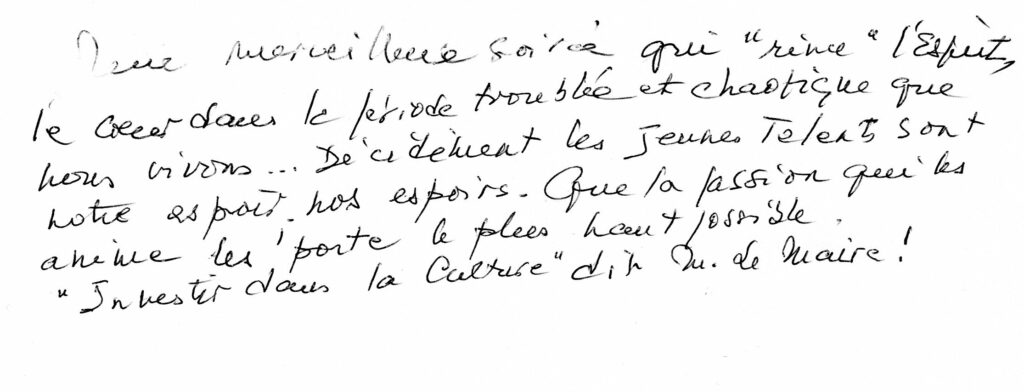 Une merveilleuse soirée qui "rince" l'Esprit,
le coeur dans la période troublée et chaotique que
nous vivons... Décidément les jeunes Talents sont
notre espoir, nos espoirs. Que la passion qui les
anime les porte le plus haut possible.
"Investir dans la Culture" dit M. le Maire !